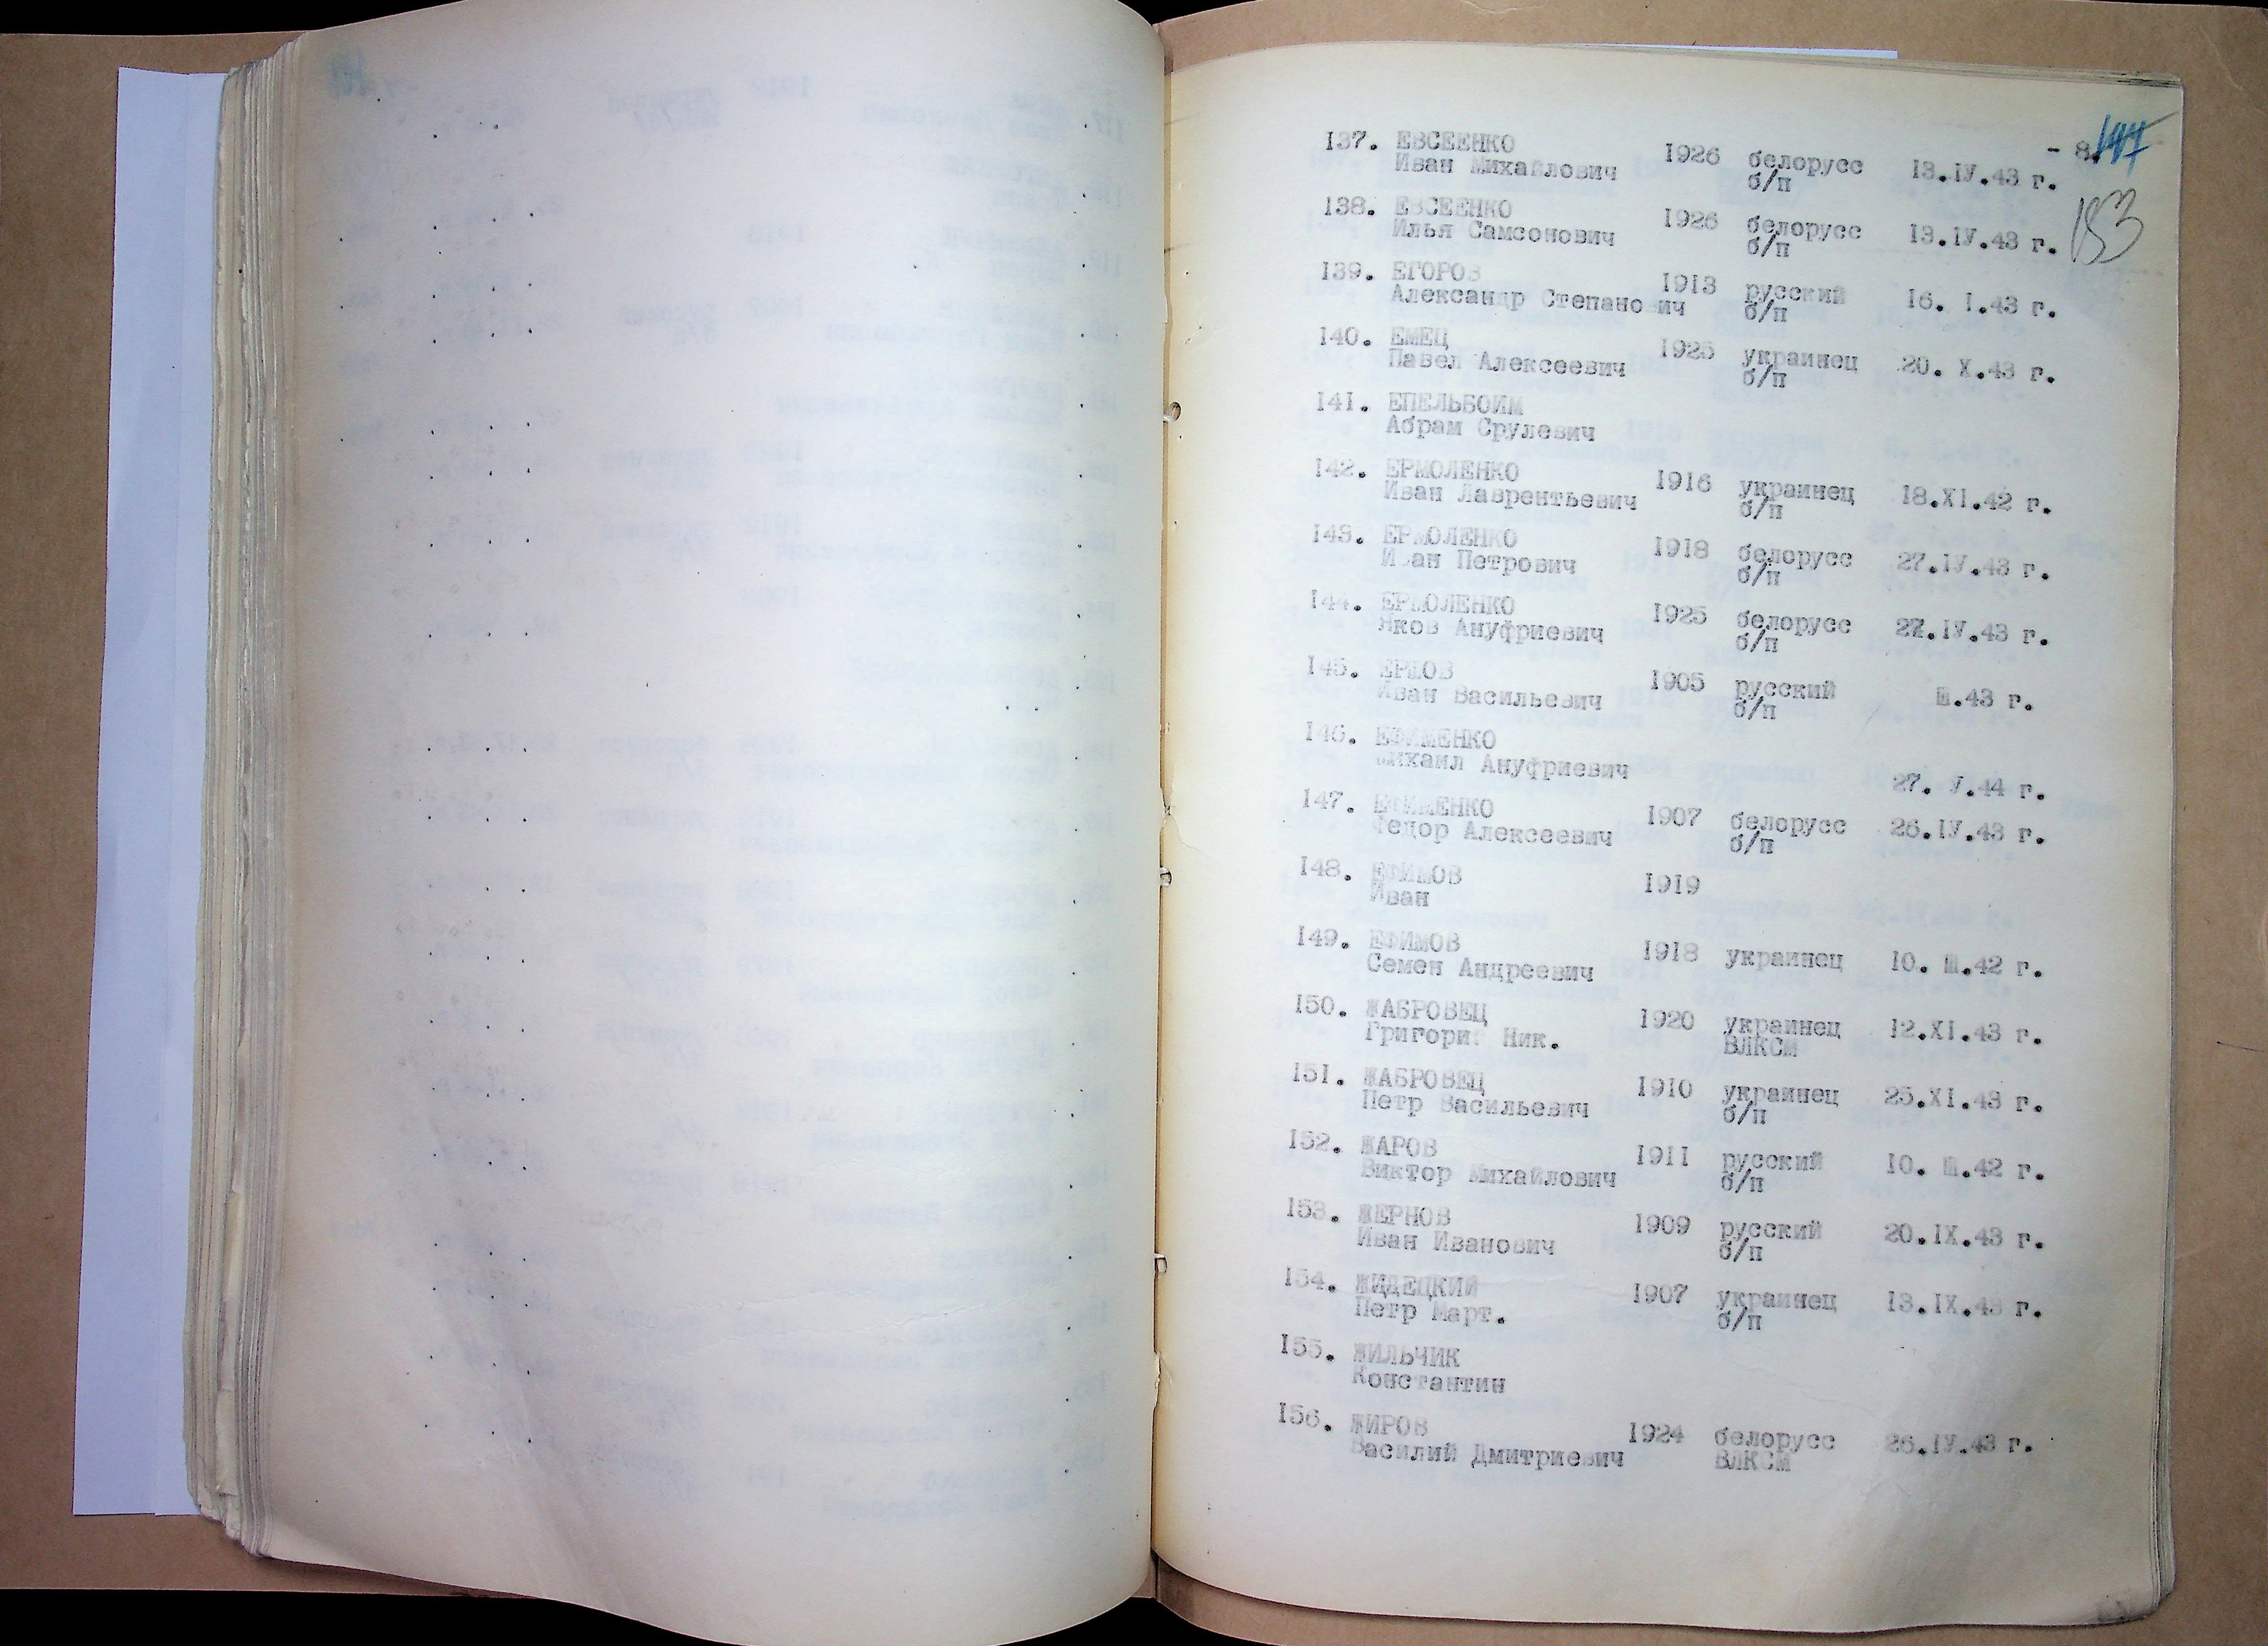 - 8. 147
153
137. ЕВСЕЕНКО 1926 белорусс 13.IV.43 г.
Иван Михайлович б/п
138. ЕВСЕЕНКО 1926 белорусс 13.IV.43 г.
Илья Самсонович б/п
139. ЕГОРОВ 1913 русский 16. I.43 г.
Александр Степанович б/п
140. ЕМЕЦ 1925 украинец 20. X.43 г.
Павел Алексеевич б/п
141. ЕПЕЛЬБОИМ
Абрам Срулевич
142. ЕРМОЛЕНКО 1916 украинец 18.XI.42 г.
Иван Лаврентьевич б/п
143. ЕРМОЛЕНКО 1918 белорусс 27.IV.43 г.
Иван Петрович б/п
144. ЕРМОЛЕНКО 1925 белорусс 27.IV.43 г.
Яков Ануфриевич б/п
145. 1905 русский Ш.43 г.
Иван Васильевич б/п
146. ЕФИМЕНКО
Михаил Ануфриевич 27. V.44 г.
147. ЕФИМЕНКО 1907 белорусс 26.IV.43 г.
Федор Алексеевич б/п
148. ЕФИМОВ 1919
Иван
149. ЕФИМОВ 1918 украинец 10. Ш.42 г.
Семен Андреевич
150. ЖАБРОВЕЦ 1920 украинец 12.XI.43 г.
Григорий Ник. ВЛКСМ
151. ЖАБРОВЕЦ 1910 украинец 25.XI.43 г.
Петр Васильевич б/п
152. ЖАРОВ 1911 русский 10. Ш.42 г.
Виктор Михайлович б/п
153. ЖЕРНОВ 1909 русский 20.IX.43 г.
Иван Иванович б/п
154. ЖИДЕЦКИЙ 1907 украинец 13.IX.43 г.
Петр Март. б/п
155. ЖИЛЬЧИК
Константин
156. ЖИРОВ 1924 белорусс 26.IV.43 г.
Василий Дмитриевич ВЛКСМ